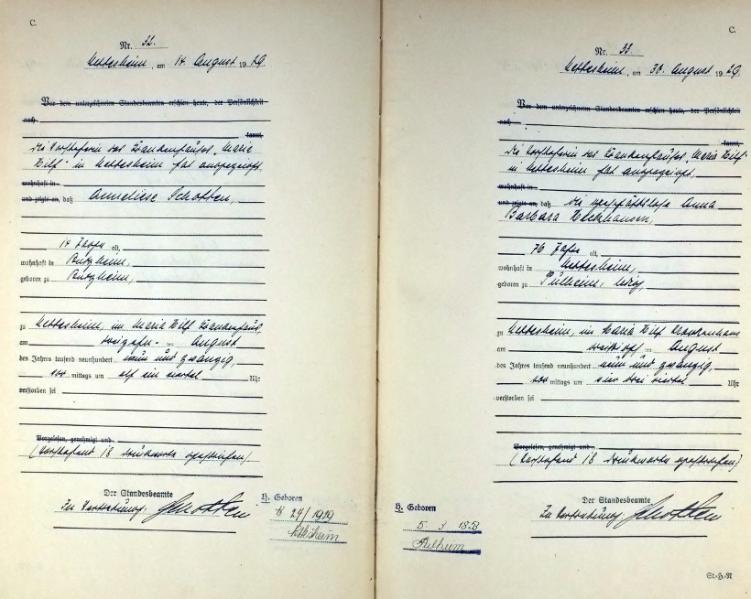 C.
Nr. 32.
Nettesheim, am 14. August 1929.
Vor dem unterzeichneten Standesbeamten erschien heute, der Persönlichkeit
nach
kannt,
die Vorsteherin des Krankenhauses "Maria
Hilf" in Nettesheim hat angezeigt,
wohnhaft in
und zeigte an, daß Anneliese Schotten,
14 Jahre alt,
wohnhaft in Butzheim,
geboren zu Butzheim,
zu Nettesheim, im Maria Hilf Krankenhaus,
am August
des Jahres tausend neunhundert neun und zwanzig,
vor mittags um elf ein viertel Uhr
verstorben sei
Vorgelesen, genehmigt und
(Vorstehend 18 Druckworte gestrichen)
Der Standesbeamte
In Vertretung: Schotten
H. Geboren
C.
Nr. 33.
Nettesheim, am 30. August 1929.
Vor dem unterzeichneten Standesbeamten erschien heute, der Persönlichkeit
nach
kannt,
die Vorsteherin des Krankenhauses "Maria Hilf"
in Nettesheim hat angezeigt,
wohnhaft in
und zeigte an, daß die geschäftslose Anna
Barbara
76 Jahre alt,
wohnhaft in Nettesheim,
geboren zu Pulheim, ledig,
zu Nettesheim, im Maria Hilf Krankenhaus
am August
des Jahres tausend neunhundert neun und zwanzig,
vor mittags um vier drei viertel Uhr
verstorben sei
Vorgelesen, genehmigt und
(Vorstehend 18 Druckworte gestrichen)
Der Standesbeamte
In Vertretung: Schotten
H. Geboren
Pulheim
St-H-N